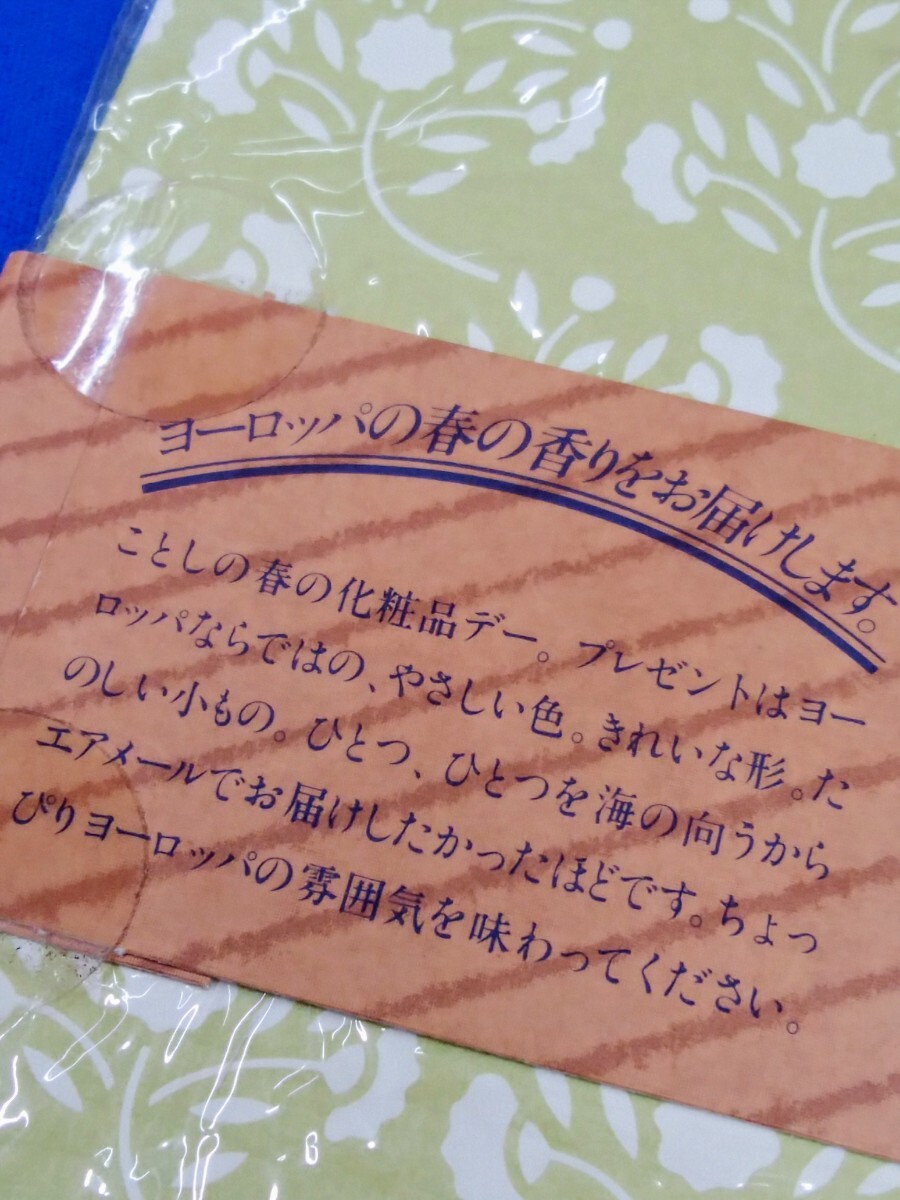 ヨーロッパの春の香りをお届けします。
ことしの春の化粧品デー。プレゼントはヨー
ロッパならではの、やさしい色。きれいな形。た
のしい小もの。ひとつ、ひとつを海の向うから
エアメールでお届けしたかったほどです。ちょっ
ぴりヨーロッパの雰囲気を味わってください。